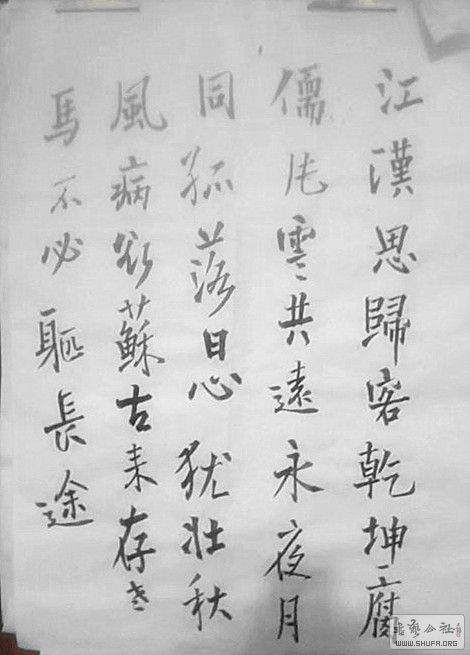 江漢思歸客乾坤一腐
儒片雲共遠永夜月
同孤落日心猶壯秋
風病欲蘇古来存老
馬不必長途
书艺公社
WWW.SHUFA.ORG